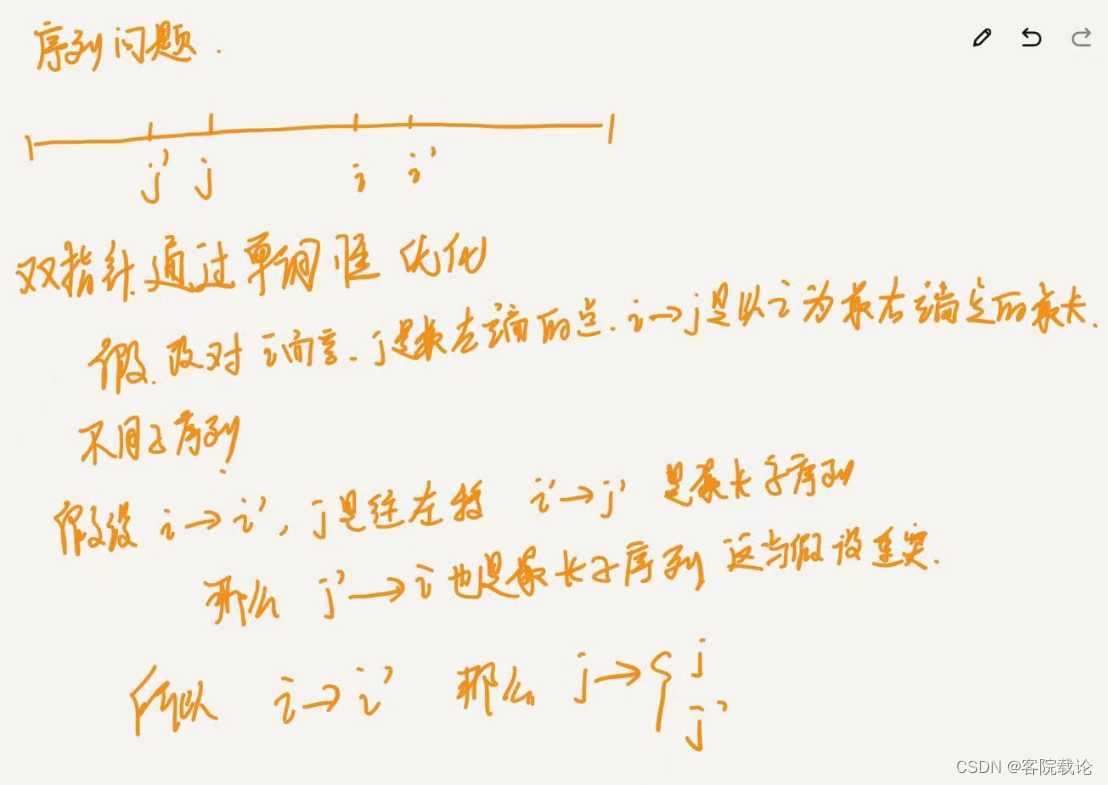 序列问题.
j' j i i'
双指针.通过单调性 优化
假.设对 i而言. j是最左端的点. i→j是以i为最右端点的最长.
不同子序列
假设 i→i', j是往左移 i'→j' 是最长子序列
那么 j'→i也是最长子序列 这与假设重突.
所以 i→i' 那么 j→{ j
j'
CSDN @客院载论